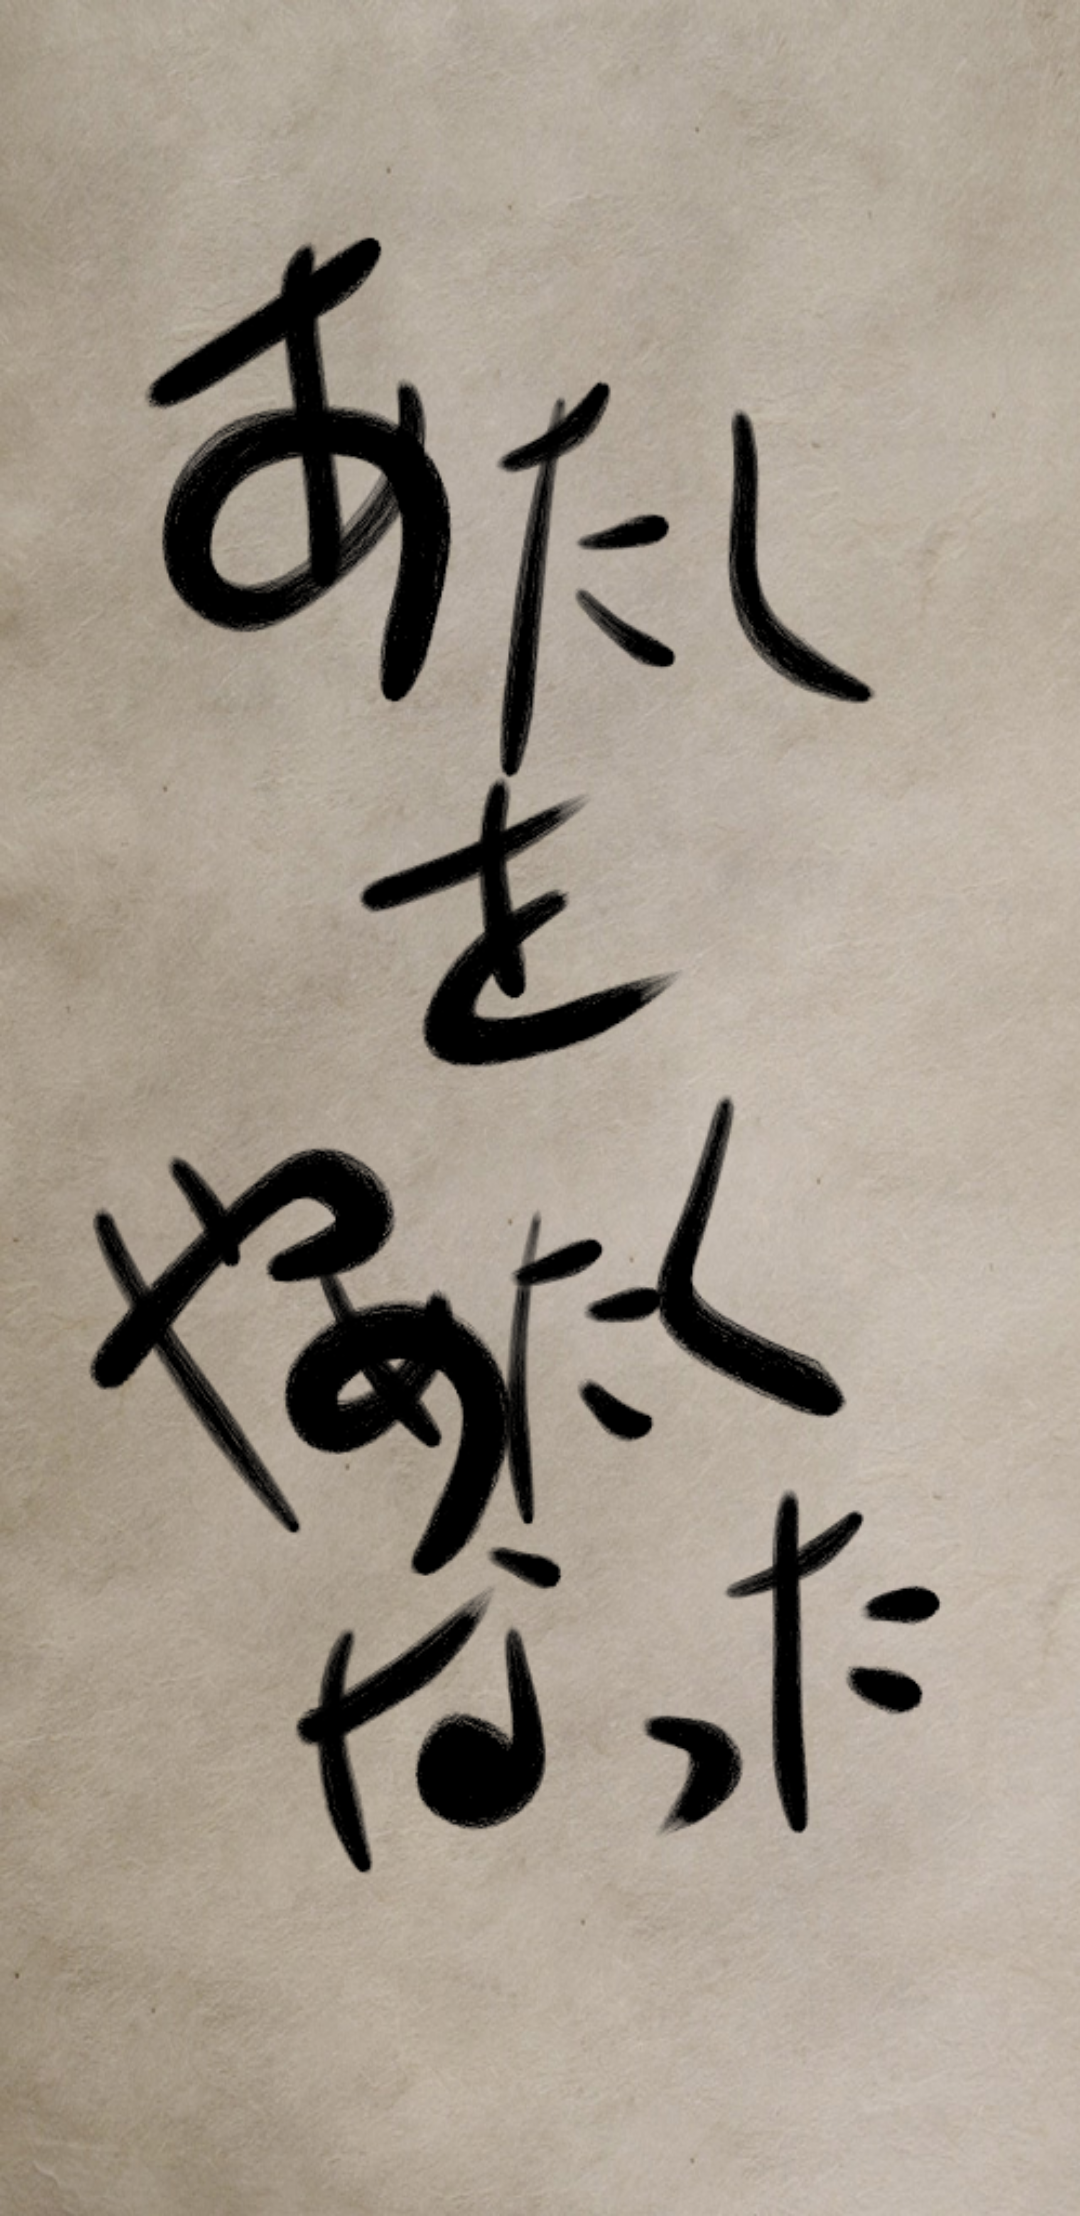 あたし
を
やめたく
なった